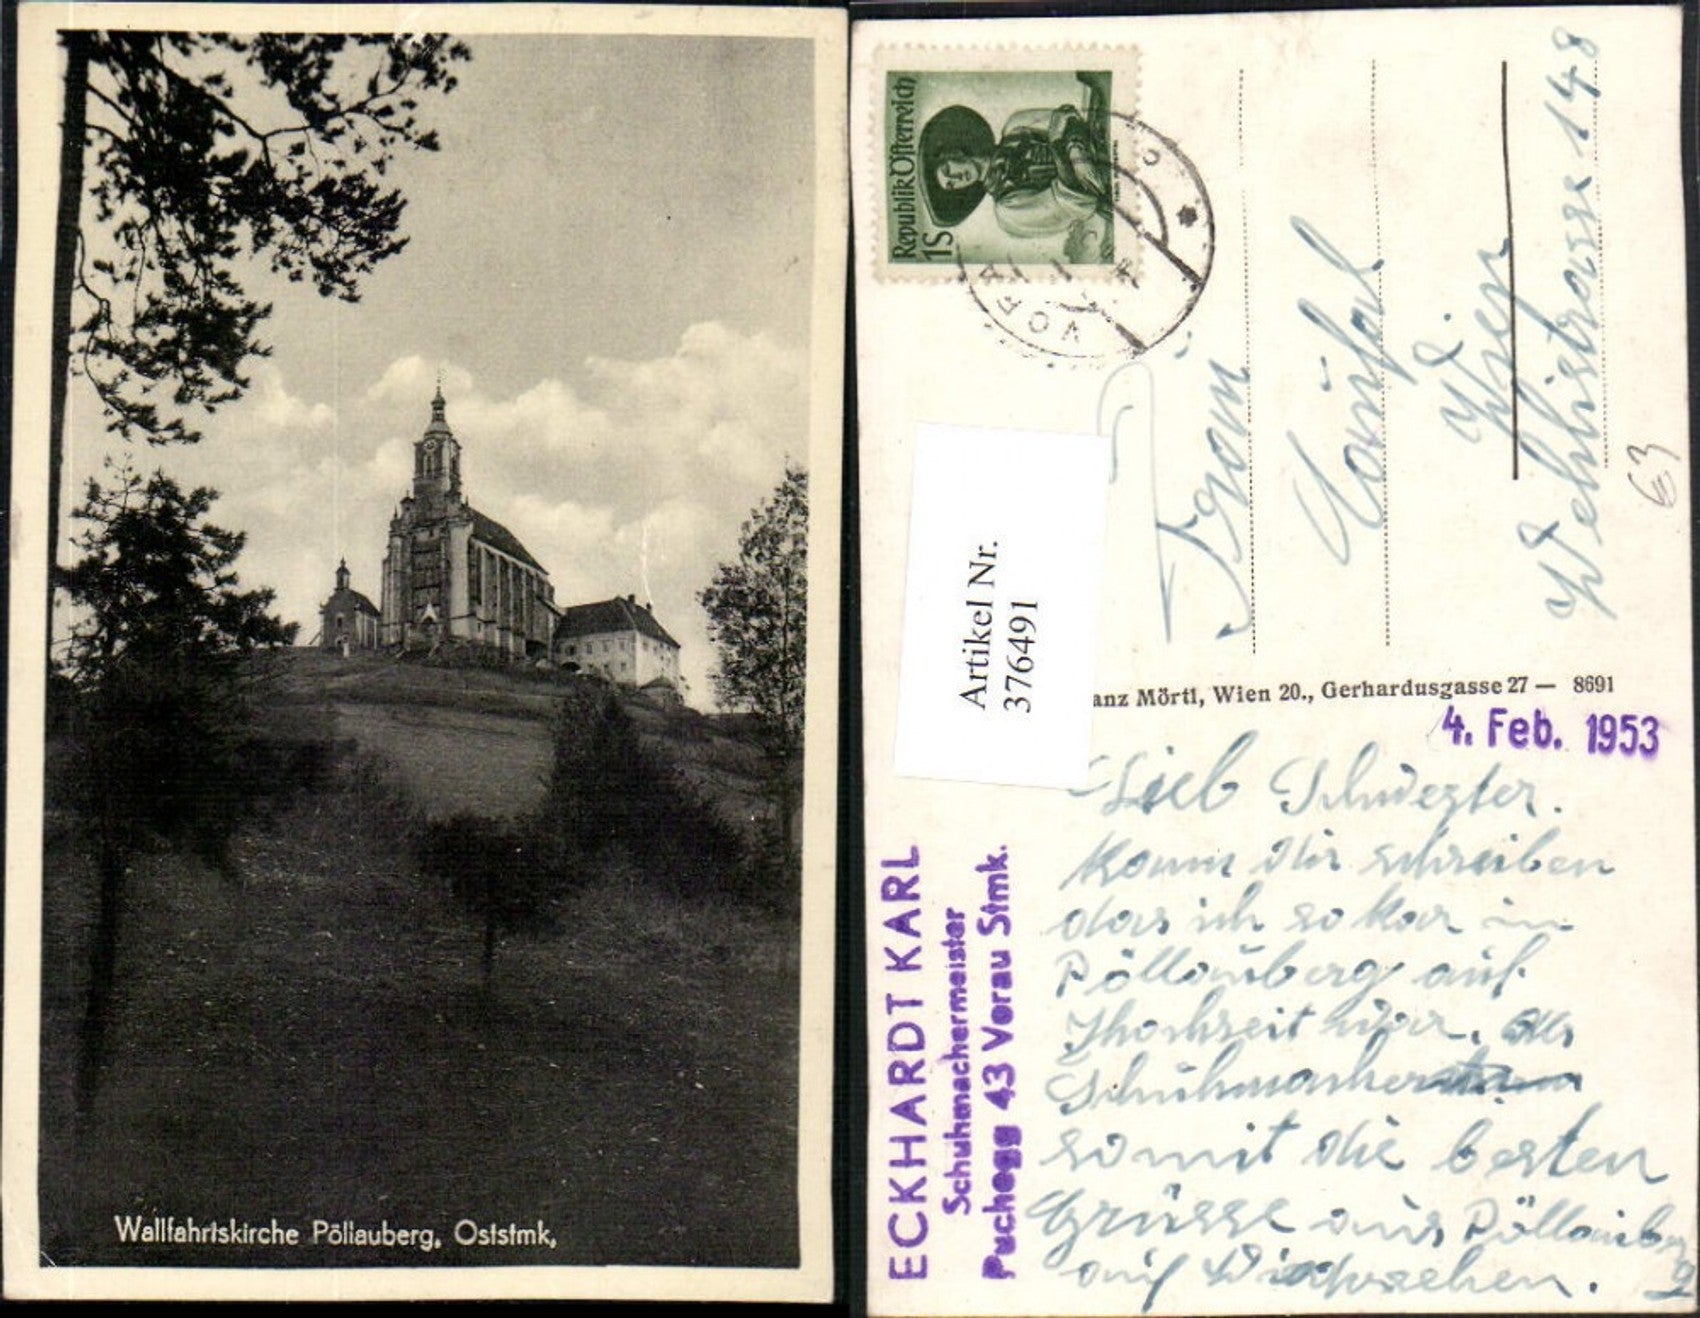 Wallfahrtskirche Pöllauberg, Oststmk,
Republik Österreich
1S
VORA
Artikel Nr.
3764691
Wien
Wehlistrasse 148
€3
anz Mörtl, Wien 20., Gerhardusgasse 27 — 8691
4. Feb. 1953
ECKHARDT KARL
Schuhmachermeister
Puchegg 43 Vorau Stmk.
Lieb Schwezter.
Kann dir schreiben
das ich so kar in
Pöllauberg auf
Hochzeit war.
Schuhmacher
somit die besten
Grüsse aus Pöllauberg
auf Wiedersehen.